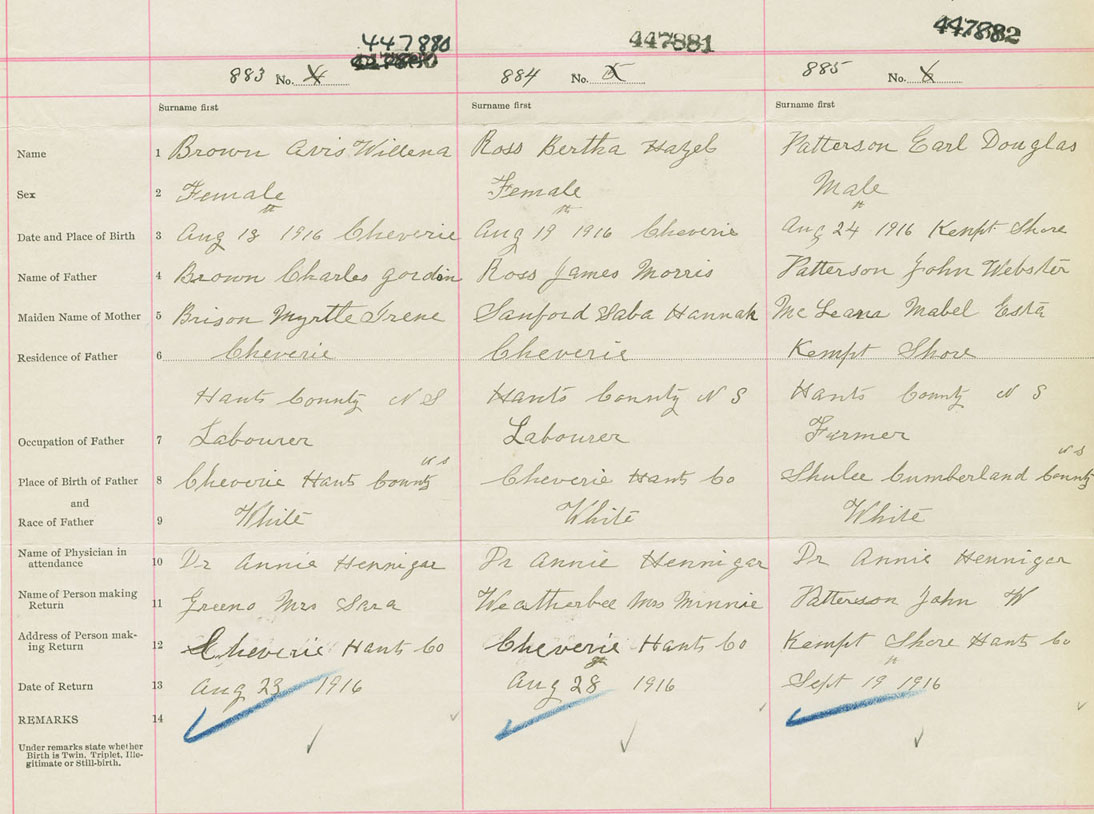 447880 447881 447882
447880
883 No. 4 884 No. 5 885 No. 6
Surname first Surname first Surname first
Name 1 Brown Avis Willena Ross Bertha Hazel Patterson Earl Douglas
Sex 2 Female Female Male
Date and Place of Birth 3 Aug 13th 1916 Cheverie Aug 19th 1916 Cheverie Aug 24th 1916 Kempt Shore
Name of Father 4 Brown Charles Gordon Ross James Morris Patterson John Webster
Maiden Name of Mother 5 Brison Myrtle Irene Sanford Saba Hannah Mabel Esta
Residence of Father 6 Cheverie Cheverie Kempt Shore
Hants County N S Hants County N S Hants County N S
Occupation of Father 7 Labourer Labourer Farmer
Place of Birth of Father 8 Cheverie Hants County N S Cheverie Hants Co Shulee Cumberland County N S
and
Race of Father 9 White White White
Name of Physician in
attendance 10 Dr Annie Hennigar Dr Annie Hennigar Dr Annie Hennigar
Name of Person making
Return 11 Greeno Mrs Sara Weatherbee Mrs Minnie Patterson John W
Address of Person mak-
ing Return 12 Cheverie Hants Co Cheverie Hants Co Kempt Shore Hants Co
Date of Return 13 Aug 23 1916 Aug 28 1916 Sept 19th 1916
REMARKS 14
Under remarks state whether
Birth is Twin, Triplet, Ille-
gitimate or Still-birth.